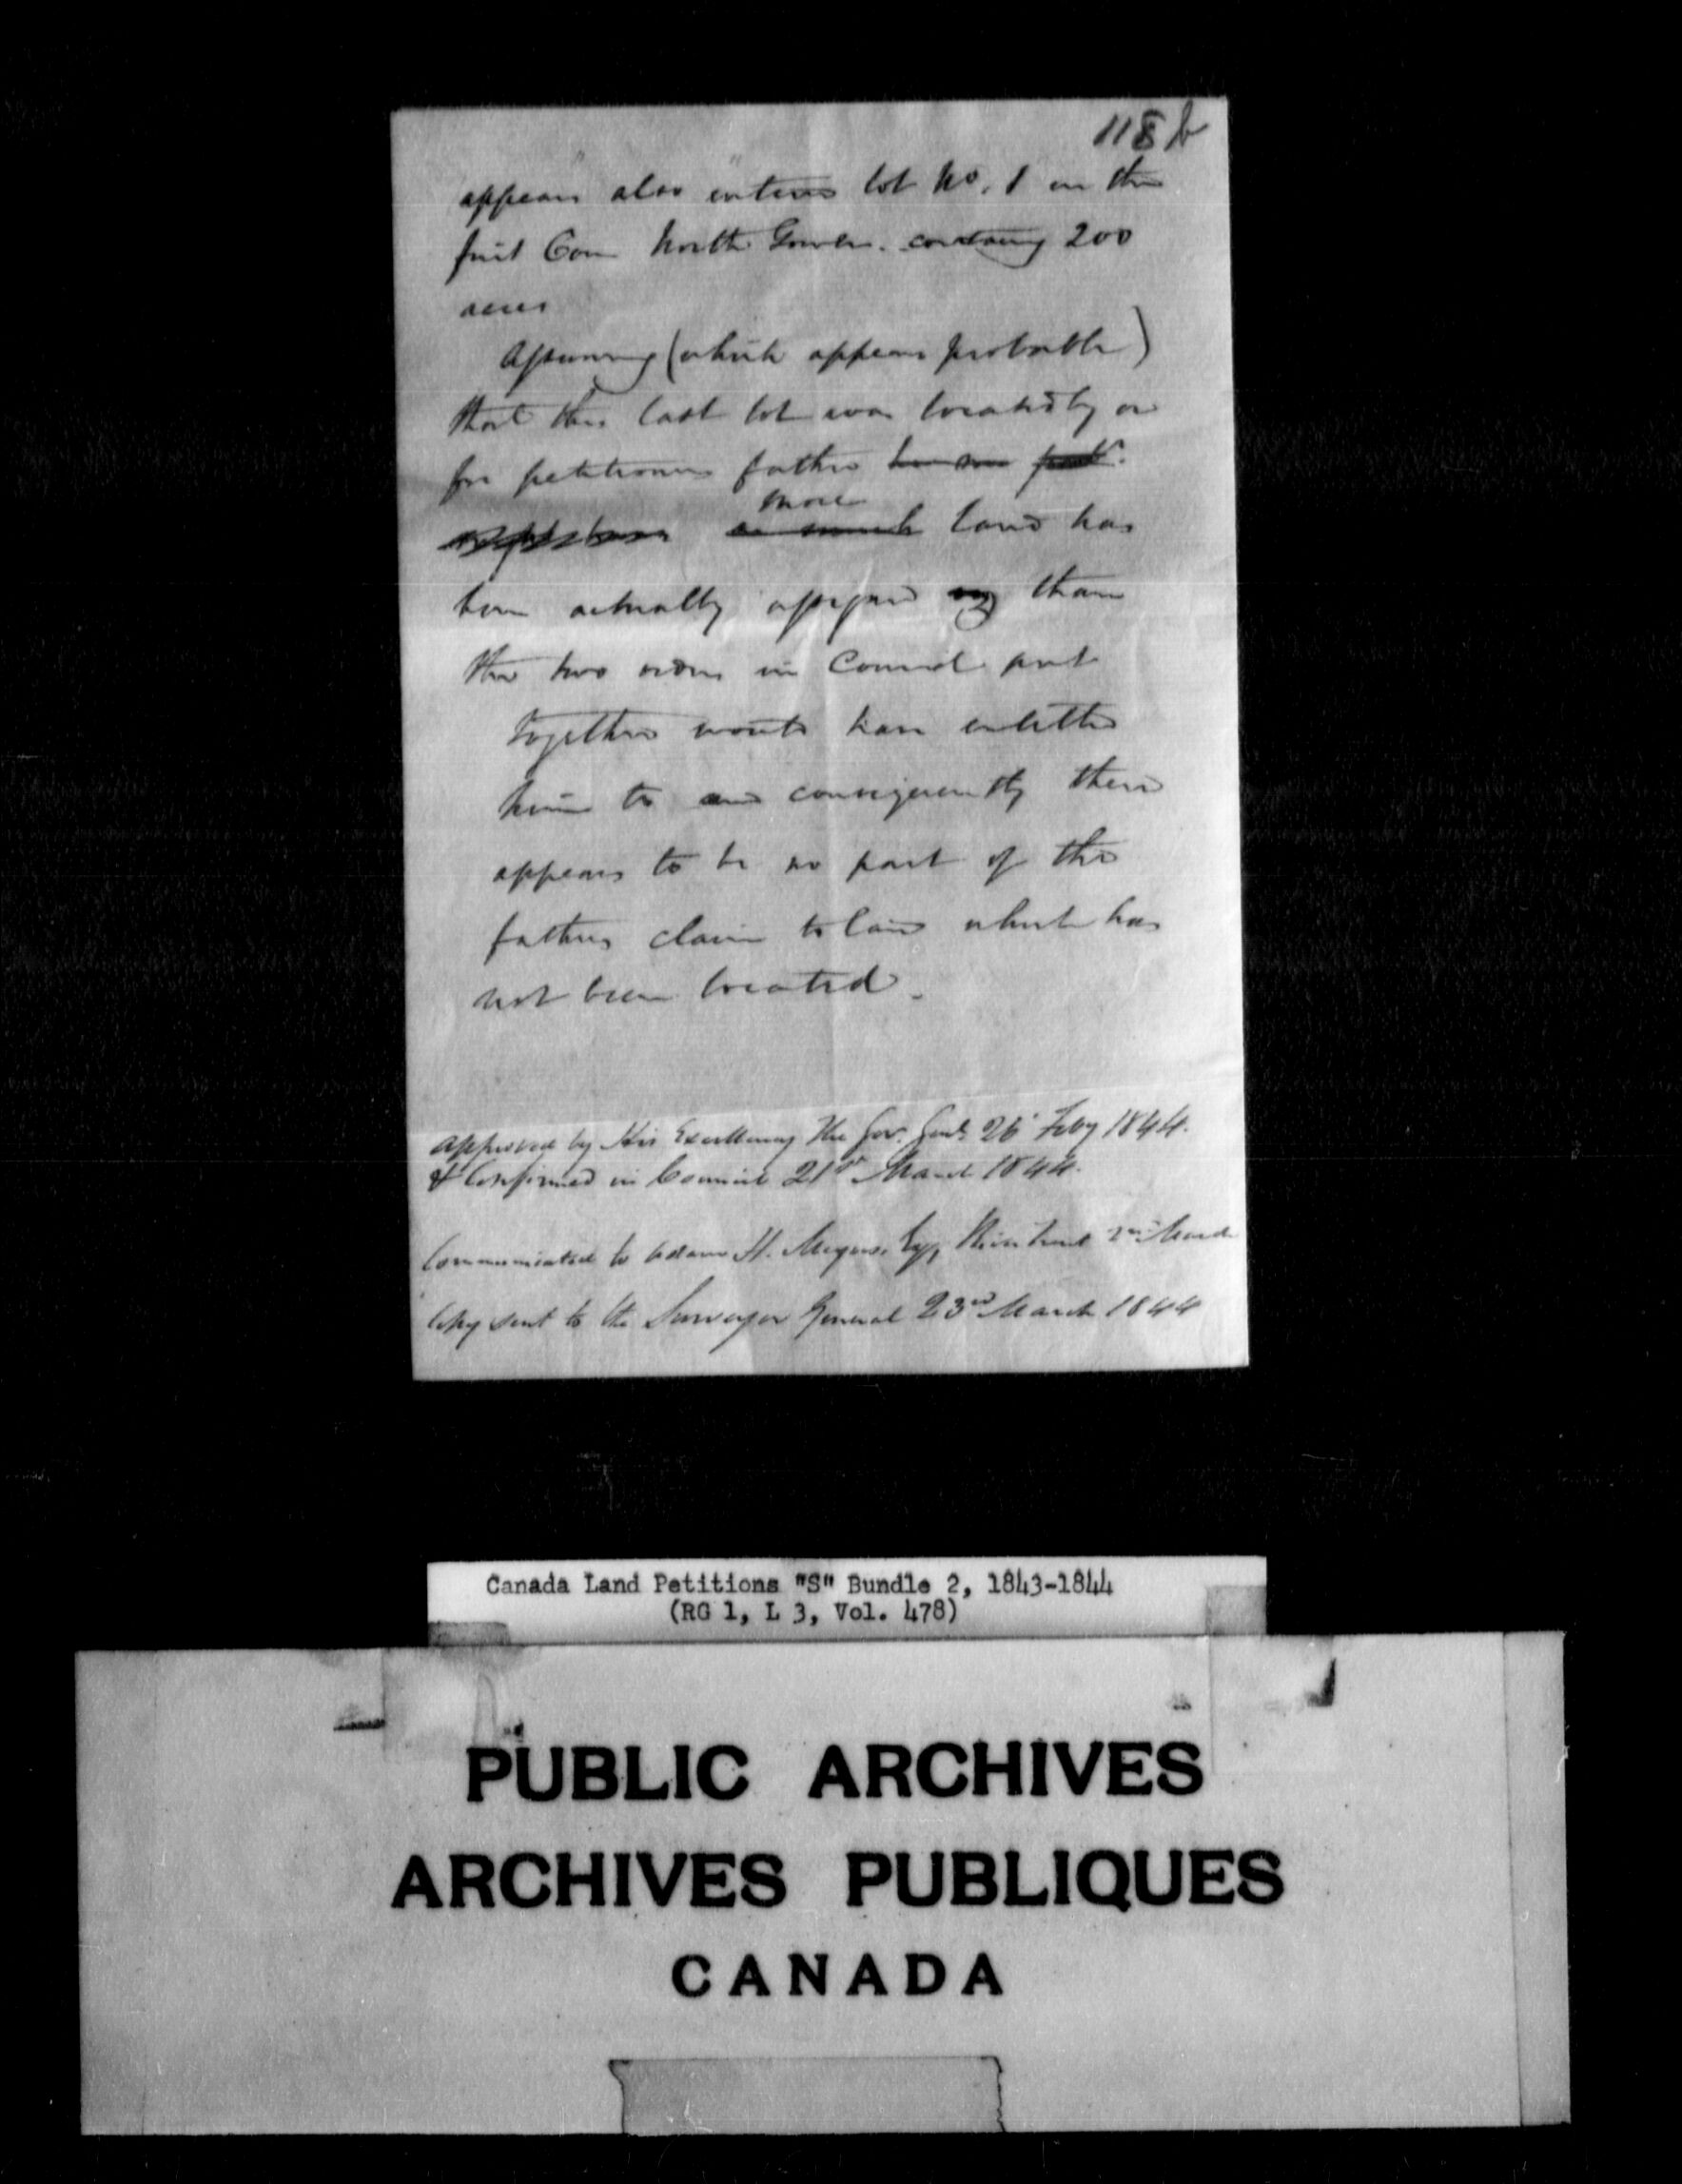 118 b
appears also entered lot No. 1 in the
first Con North Gower. containg 200
acres
Assuming (which appears probable)
that this last lot was located by or
for petitioners father
more
land has
been actually assigned than
the two orders in Council put
together would have entitled
him to and consequently there
appears to be no part of the
fathers claim to land which has
not been located.
Approved by His Excellency The Gov. Genl. 26 Feby 1844.
& Confirmed in Council 21st March 1844.
Communicated to Adam H. Meyers, Esq, March
Copy sent to the Surveyor General 23rd March 1844
Canada Land Petitions "S" Bundle 2, 1843-1844
(RG 1, L 3, Vol. 478)
PUBLIC ARCHIVES
ARCHIVES PUBLIQUES
CANADA